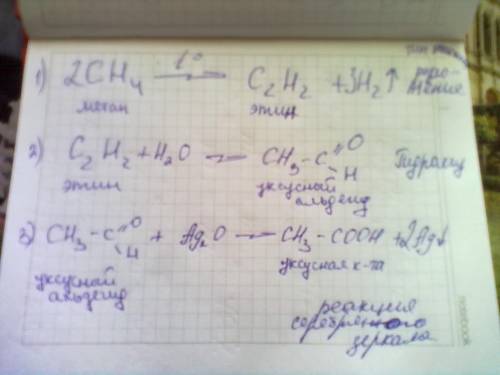 1) 2CH₄ —t°→ C₂H₂ + 3H₂↑
метан этин
2) C₂H₂ + H₂O → CH₃ – C =O H
этин уксусный альдегид
3) CH₃ – C =O H + Ag₂O → CH₃ – COOH + 2Ag↓
уксусный альдегид уксусная к-та
реакция
серебряного
зеркала
notebook